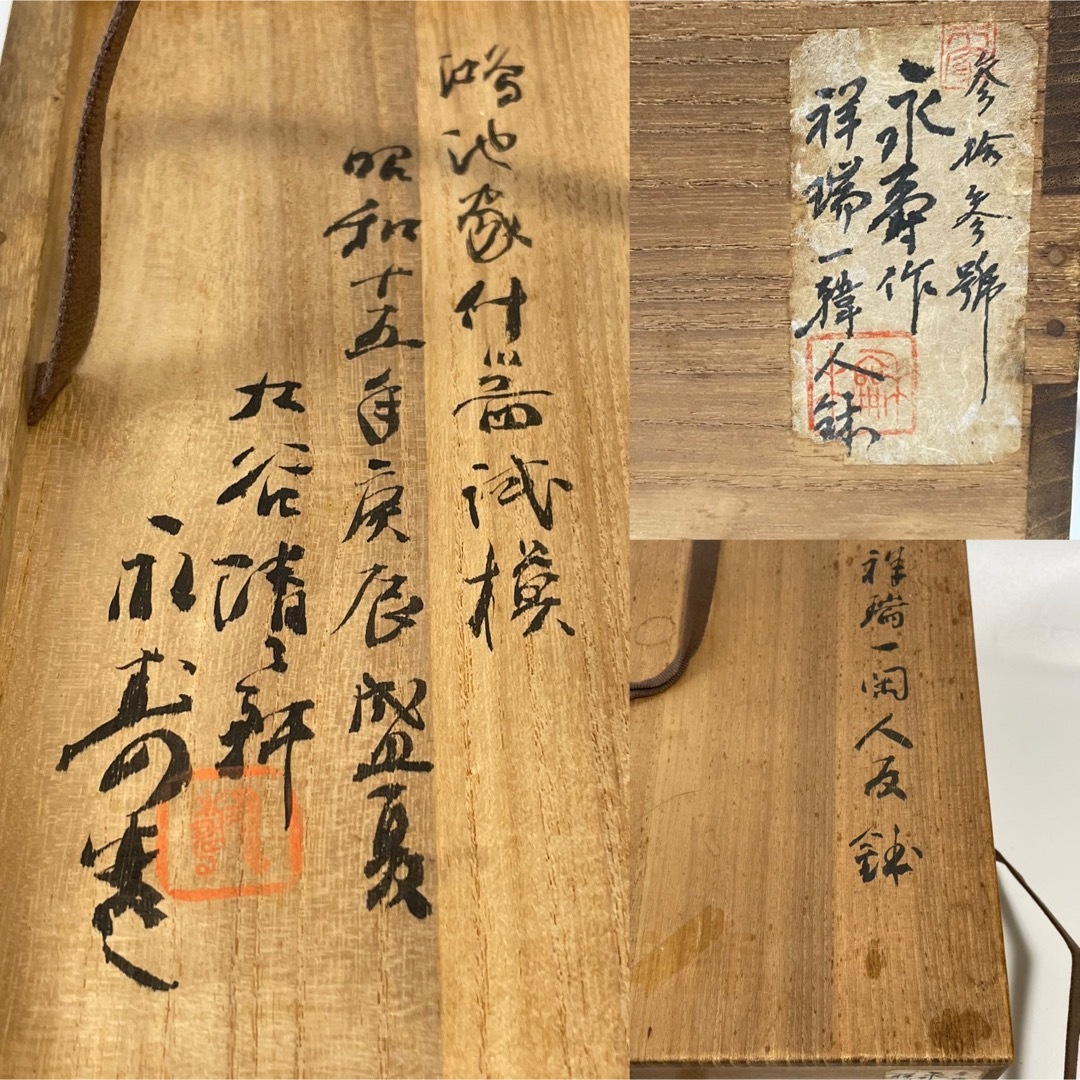 鴻池家什器試模
昭和十五年庚辰盛夏
九谷晴々軒
永寿造
参拾参號
永壽作
祥瑞一韓人鉢
祥瑞一閑人反鉢